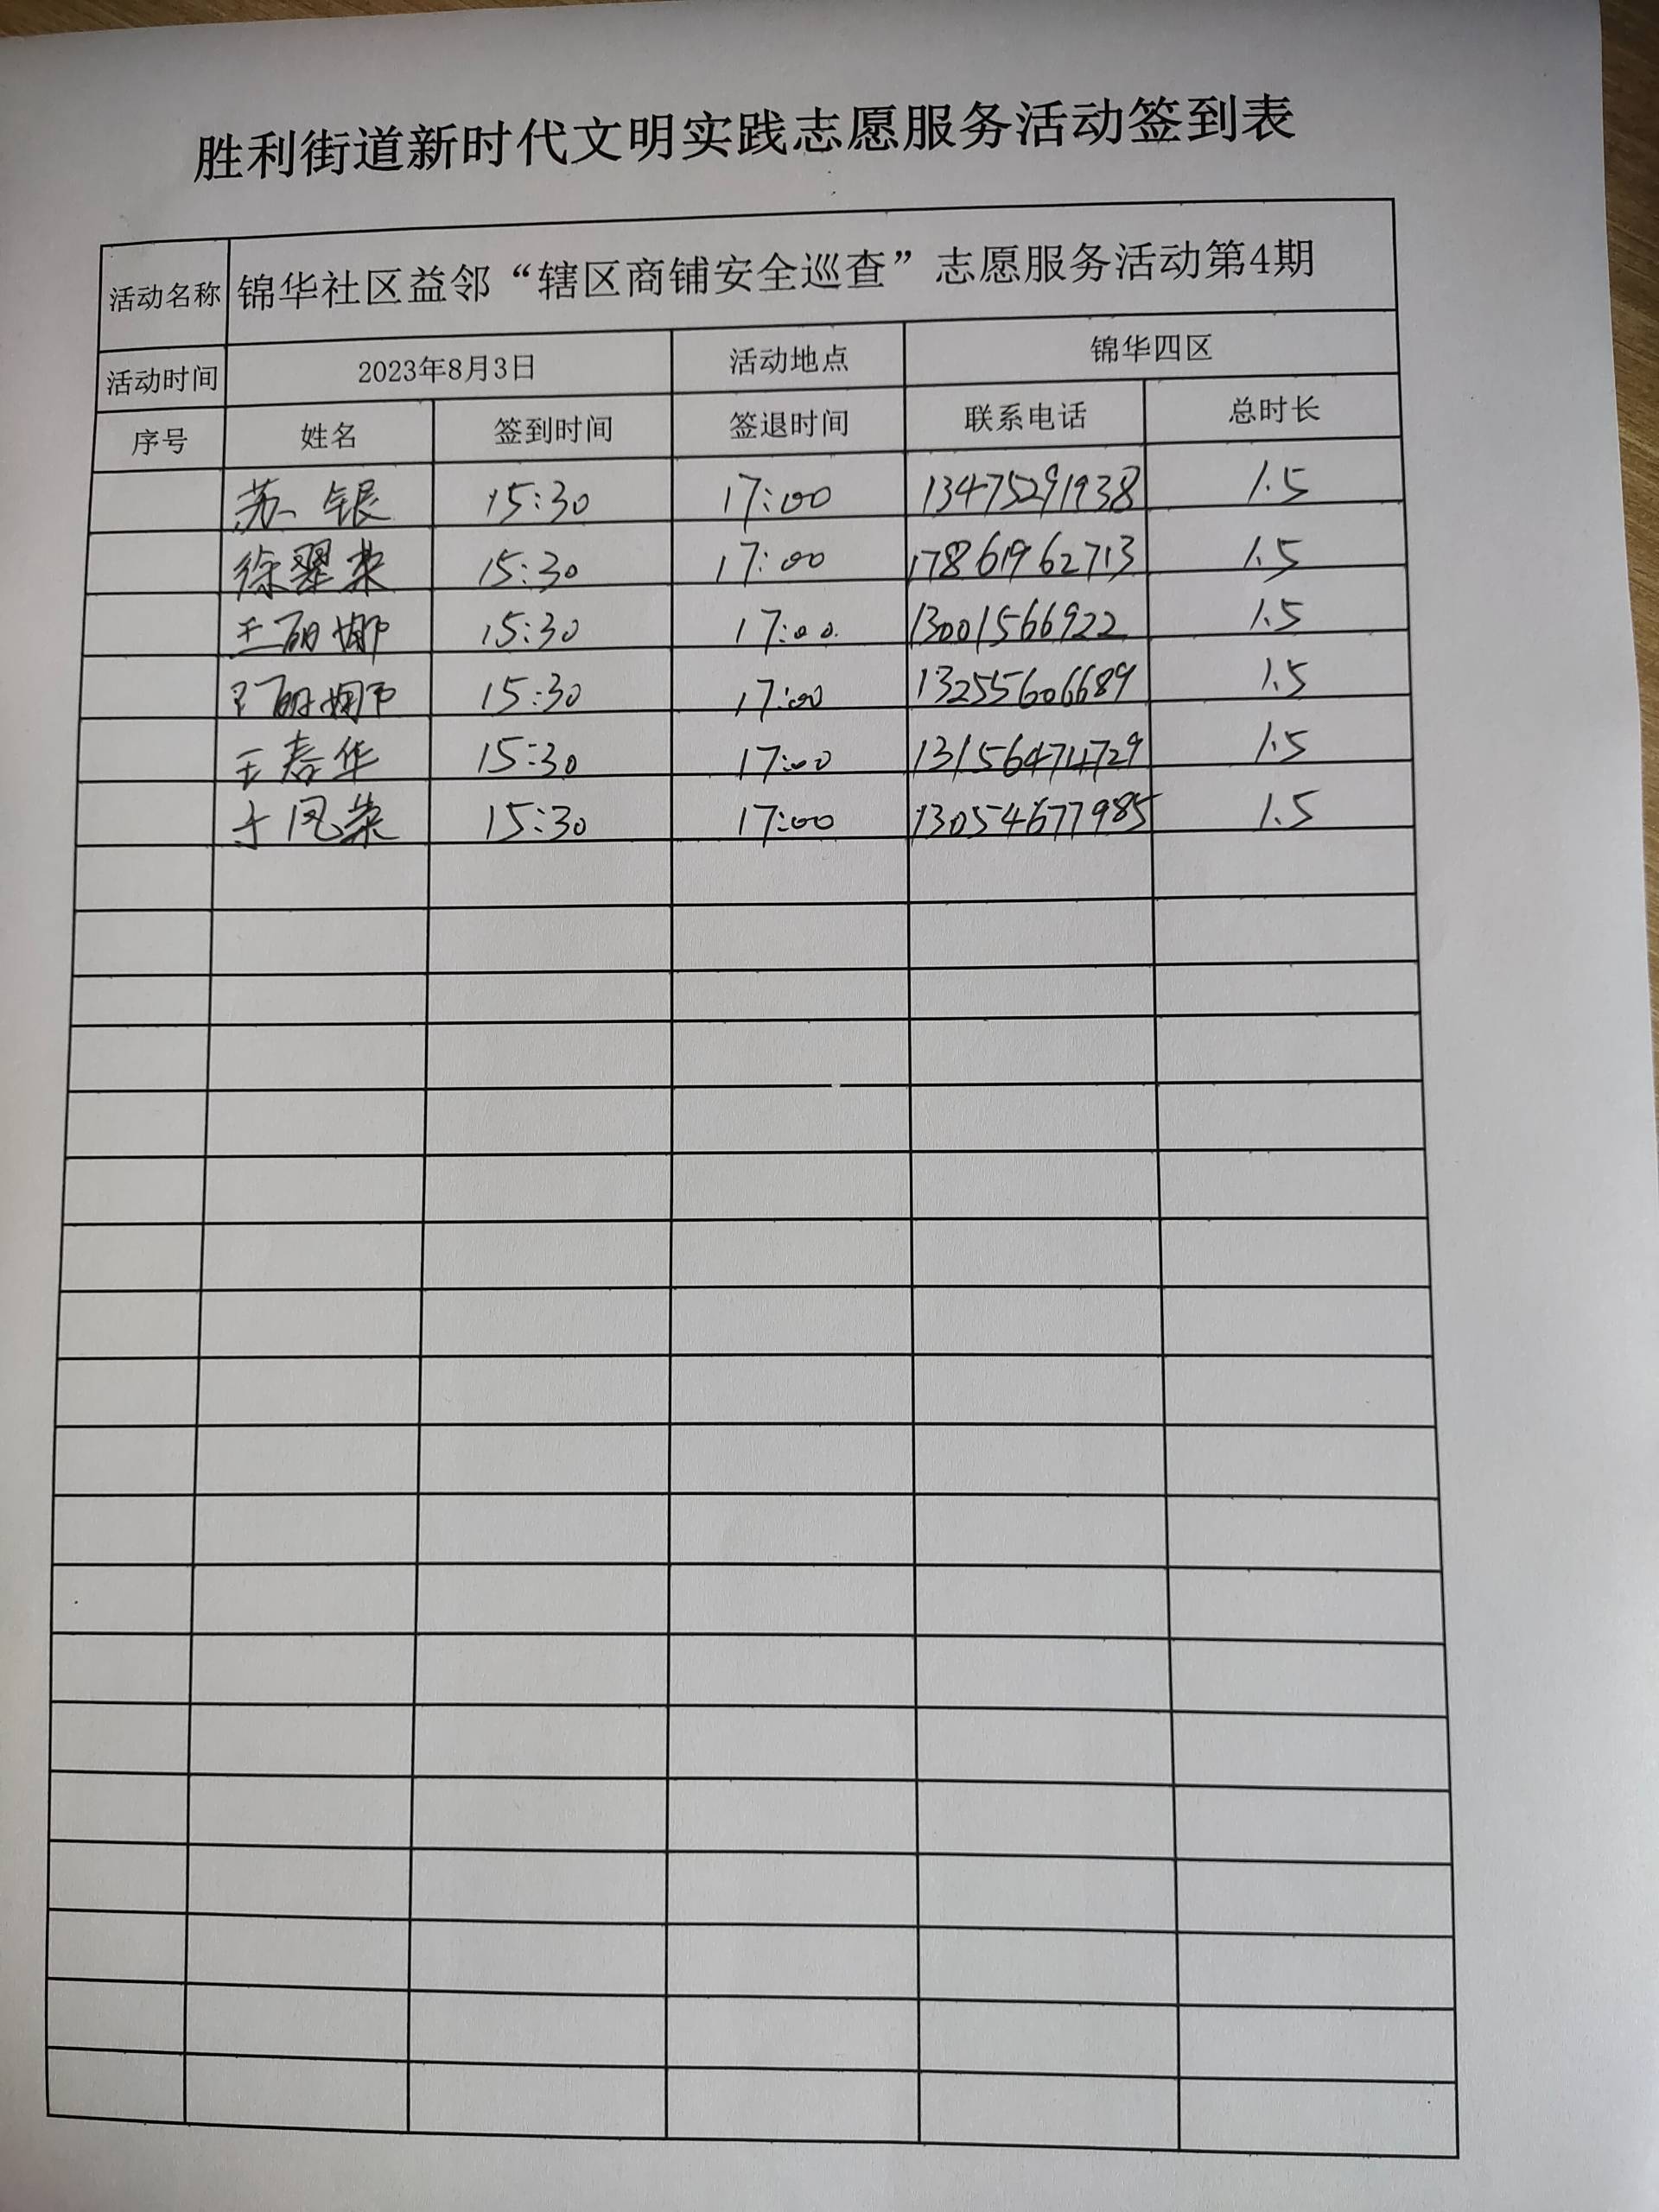 胜利街道新时代文明实践志愿服务活动签到表
活动名称 锦华社区益邻“辖区商铺安全巡查”志愿服务活动第4期
活动时间 2023年8月3日 活动地点 锦华四区
序号 姓名 签到时间 签退时间 联系电话 总时长
苏银 15:30 17:00 13475291938 1.5
徐翠荣 15:30 17:00 17861962713 1.5
王丽娜 15:30 17:00 13001566922 1.5
王丽娜 15:30 17:00 13255606689 1.5
王春华 15:30 17:00 1.5
于凤荣 15:30 17:00 13054677985 1.5